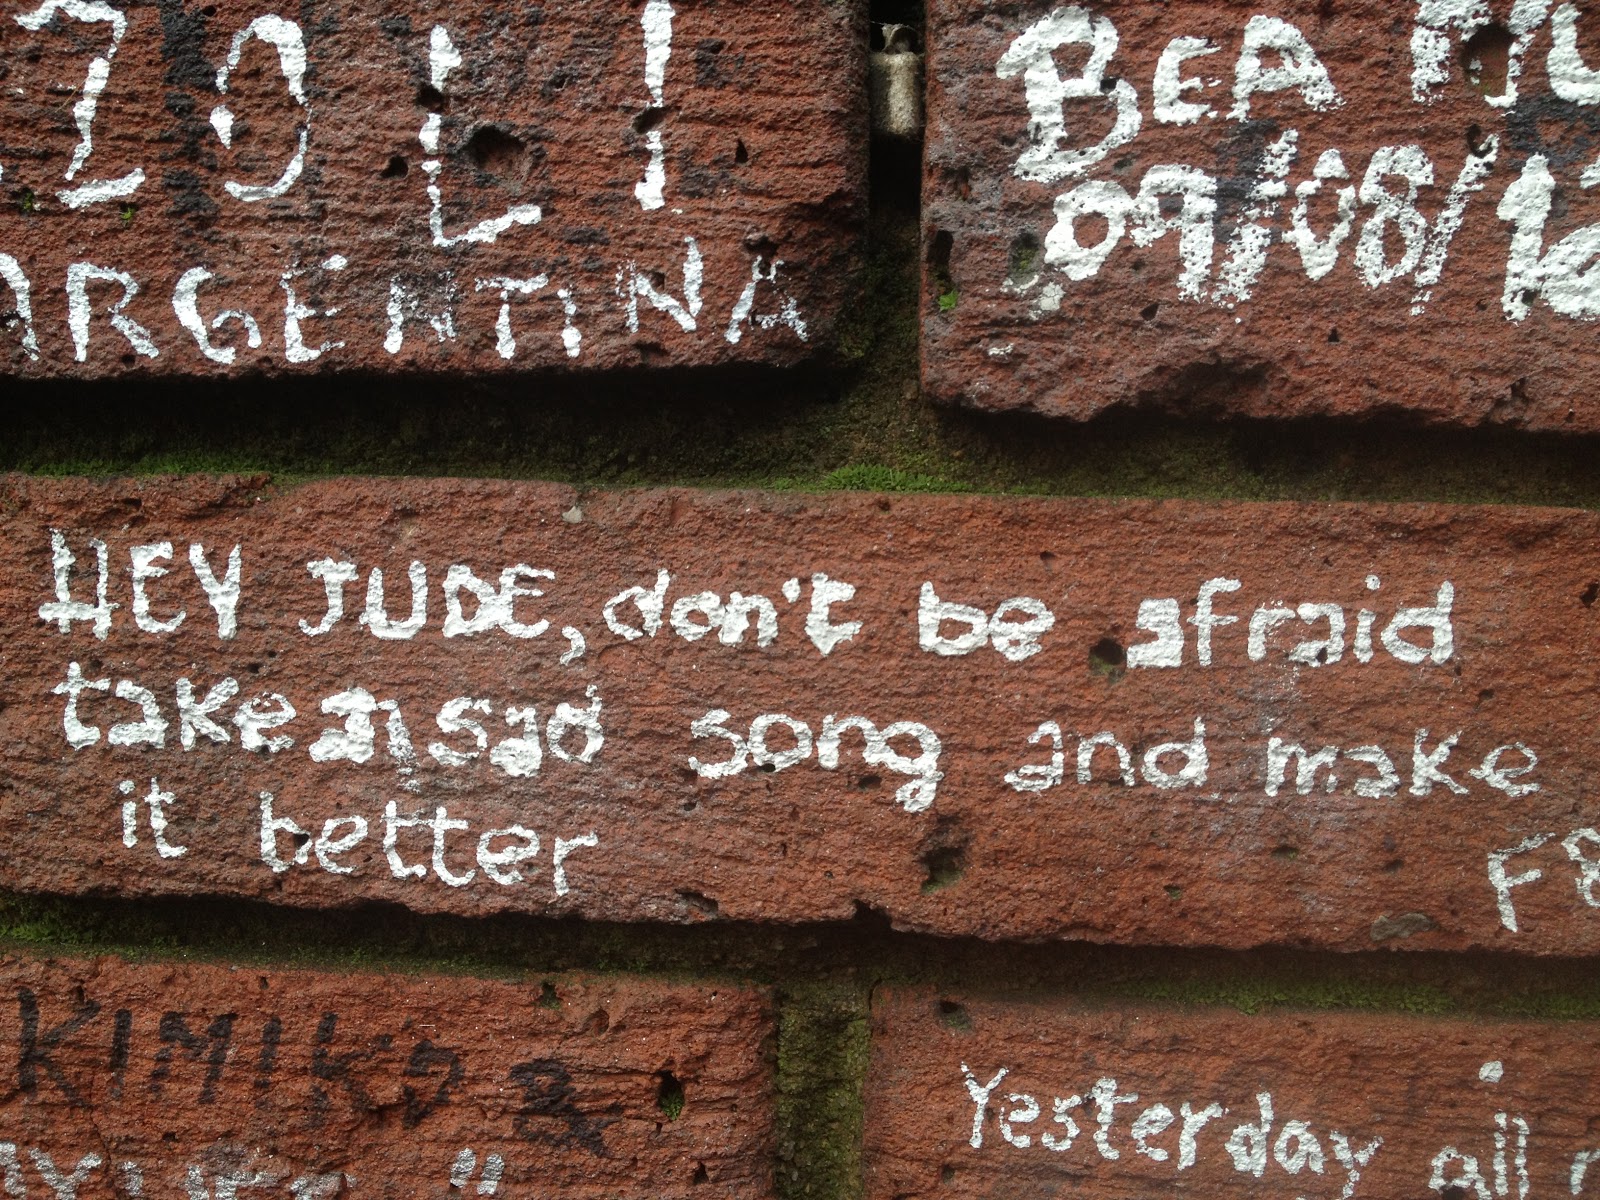 ARGENTINA
BEA
09/08/16
HEY JUDE, don't be afraid
take a sad song and make
it better
KIMIKO &
Yesterday all